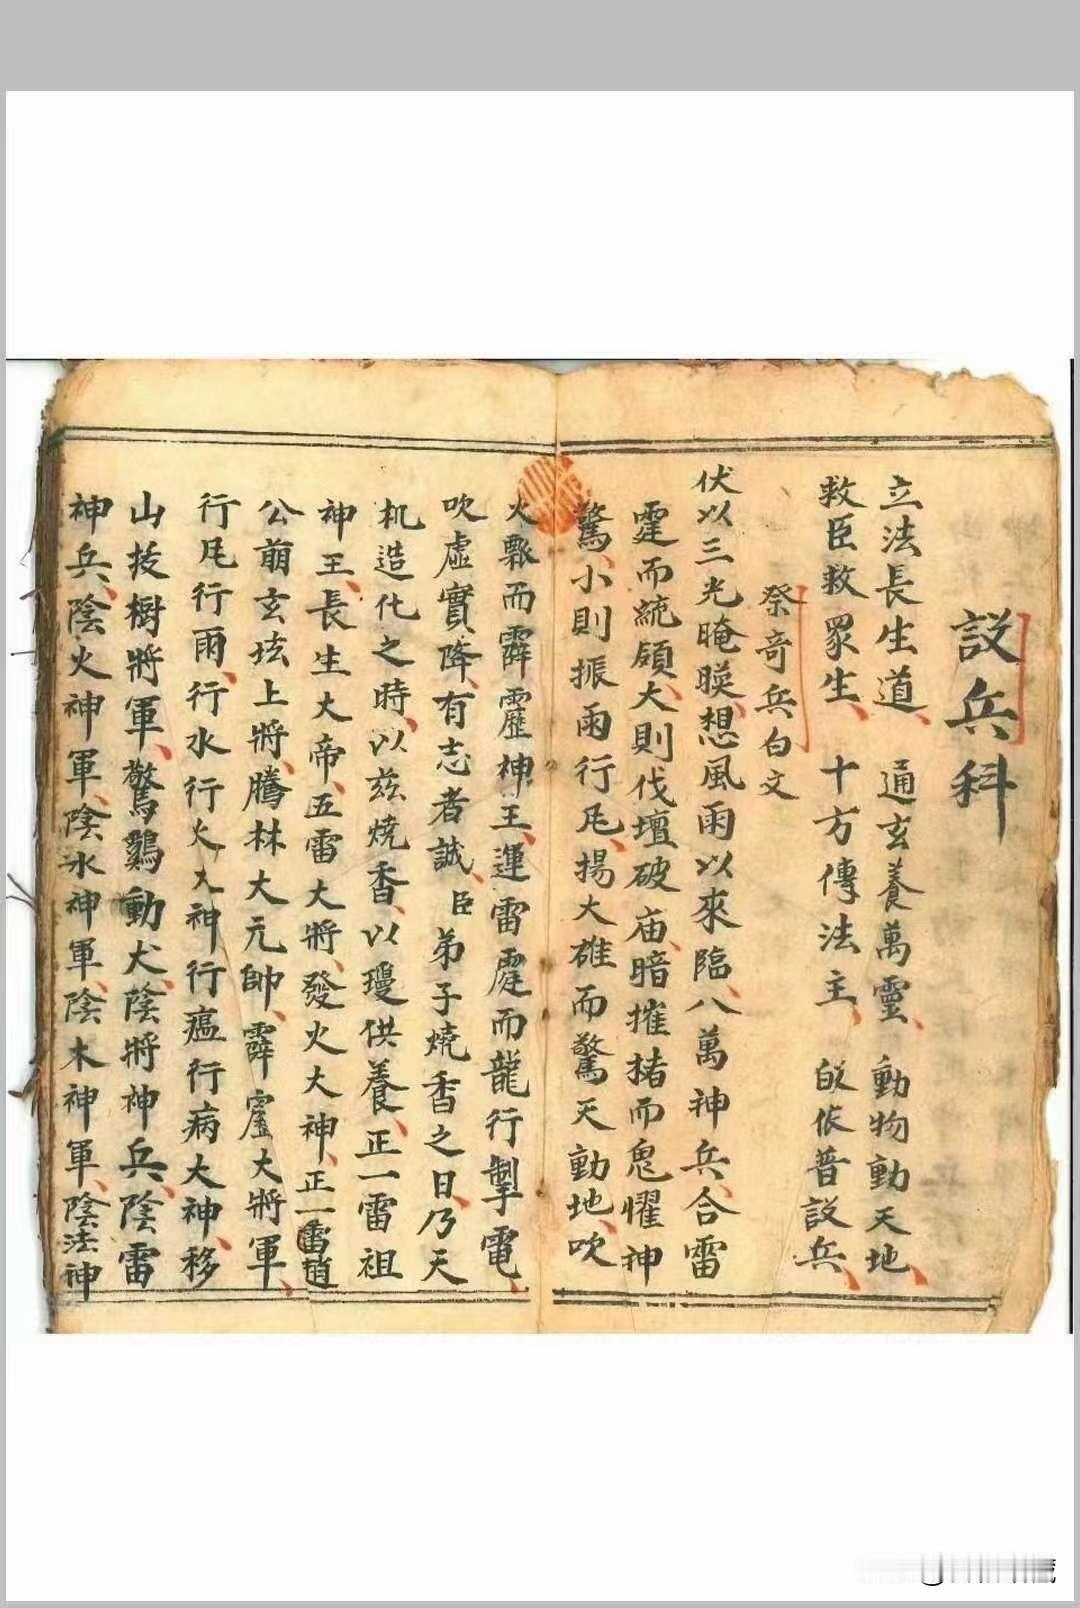 設兵科
立法長生道、通玄養萬靈、動物動天地、
救臣救眾生、十方傳法主、皈依普設兵、
祭奇兵白文
伏以三光晻暎、想風雨以來臨、八萬神兵、合雷
霆而統領、大則伐壇破庙、暗摧楮而鬼懼神
驚、小則振雨行凬、揚大雄而驚天動地、吹
火飄而霹靂神王、運雷霆而龍行掣電、
吹虛實降、有志者誠、臣弟子燒香之日、乃天
机造化之時、以茲燒香、以瓊供養、正一雷祖
神王、長生大帝、五雷大將、發火大神、正一雷趙
公萠玄坛上將、騰林大元帥、霹靂大將軍、
行凬行雨、行水行火大神行瘟行病大神、移
山拔樹將軍、驚鷄動犬、陰將神兵、陰雷
神兵、陰火神軍、陰水神軍、陰木神軍、陰法神